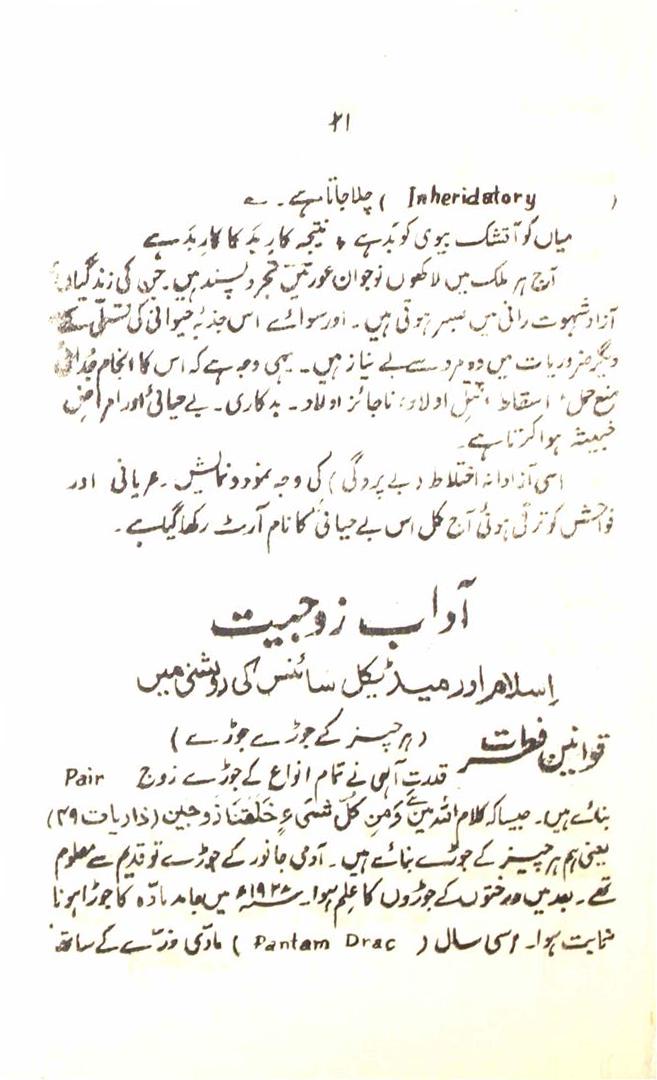 ۲۱
( Inheridatory ) چلا جاتا ہے۔ ؎
میاں کو آتشک بیوی کو بد ہے ٭ نتیجہ کارِ بد کا کارِ بد ہے
آج ہر ملک میں لاکھوں نوجوان عورتیں تجرد پسند ہیں۔ جن کی زندگیاں
آزاد شہوت رانی میں بسر ہوتی ہیں۔ اور سوائے اس جذبۂ حیوانی کی تسلی کے
دیگر ضروریات میں وہ مرد سے بے نیاز ہیں۔ یہی وجہ ہے کہ اس کا انجام جدائی
منع حمل، اسقاط، قتل اولاد، ناجائز اولاد۔ بدکاری۔ بے حیائی اور امراض
خبیثہ ہوا کرتا ہے۔
اسی آزادانہ اختلاط (بے پردگی) کی وجہ نمود و نمایش۔ عریانی اور
فواحش کو ترقی ہوئی آج کل اس بے حیائی کا نام آرٹ رکھا گیا ہے۔
آداب زوجیت
اسلام اور میڈیکل سائنس کی روشنی میں
قوانین فطرت (ہر چیز کے جوڑے جوڑے)
قدرتِ آلہی نے تمام انواع کے جوڑے زوج Pair
بنائے ہیں۔ جیسا کہ کلام اللہ میں ہے وَمِن کُلِّ شَیءٍ خَلَقنَا زَوجین (ذاریات ۴۹)
یعنی ہم ہر چیز کے جوڑے بنائے ہیں۔ آدمی جانور کے جوڑے تو قدیم سے معلوم
تھے۔ بعد میں درختوں کے جوڑوں کا علم ہوا۔ سنہ ۱۹۲۸ء میں جامد مادّہ کا جوڑا ہونا
ثابت ہوا۔ اسی سال ( Pantam Drac ) مادّی ذرّے کے ساتھ